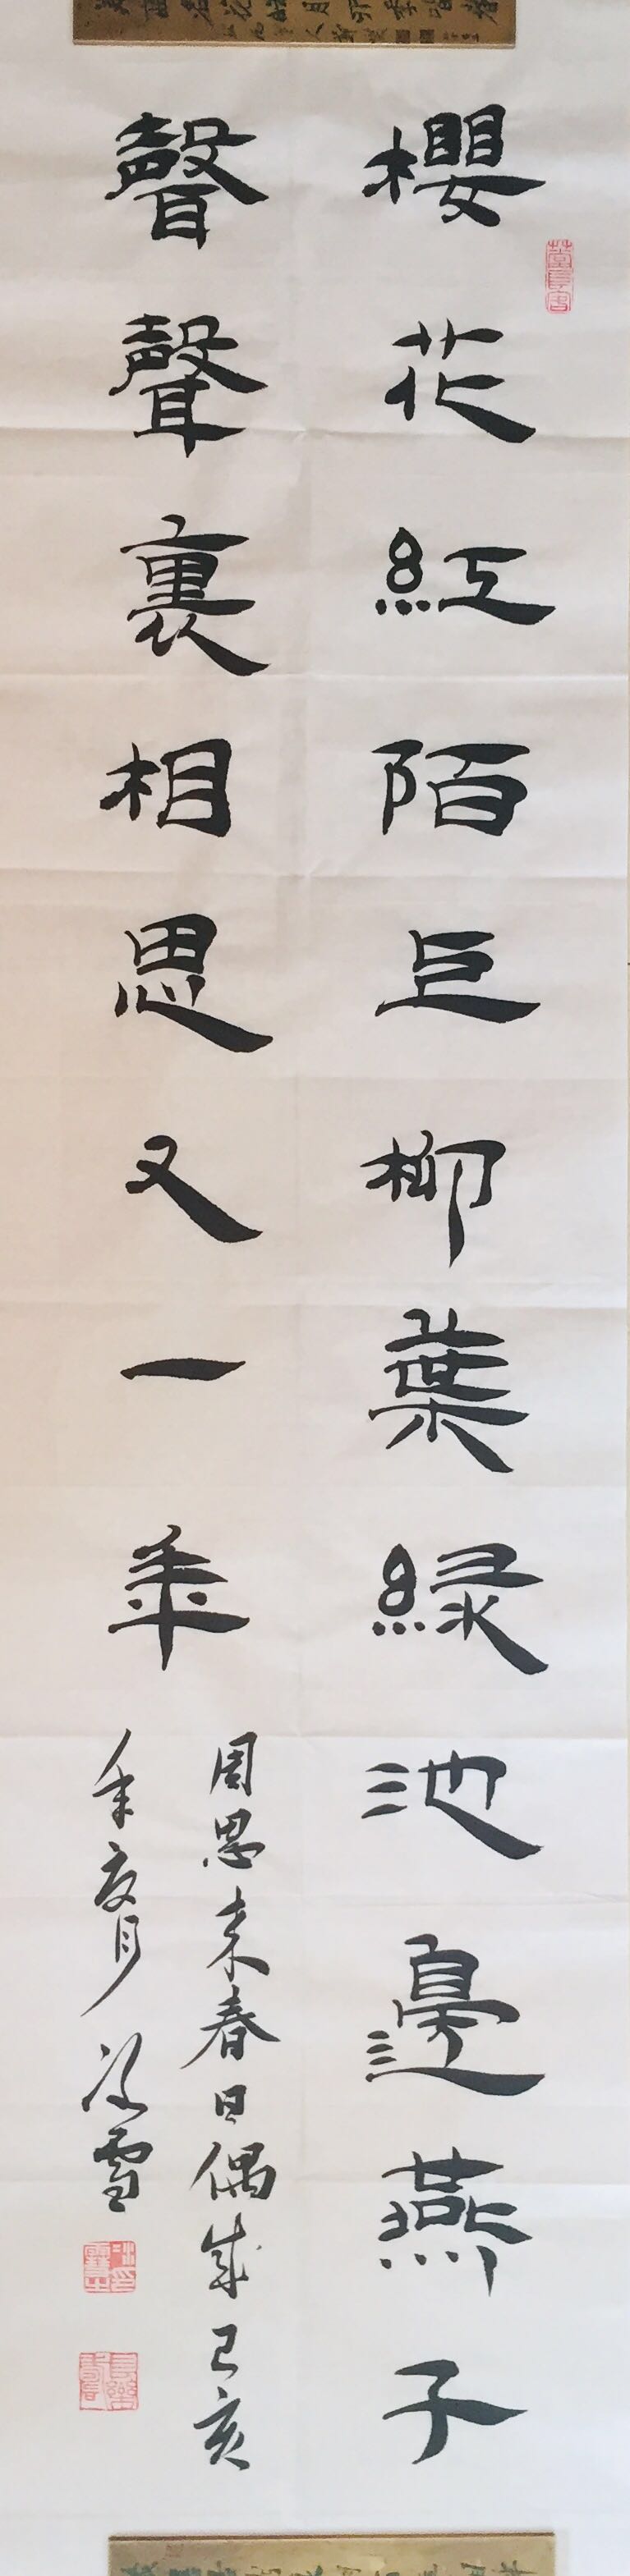 櫻花紅陌上柳葉綠池邊燕子
聲聲裏相思又一年
周恩来春日偶成己亥
年夏月冰雪